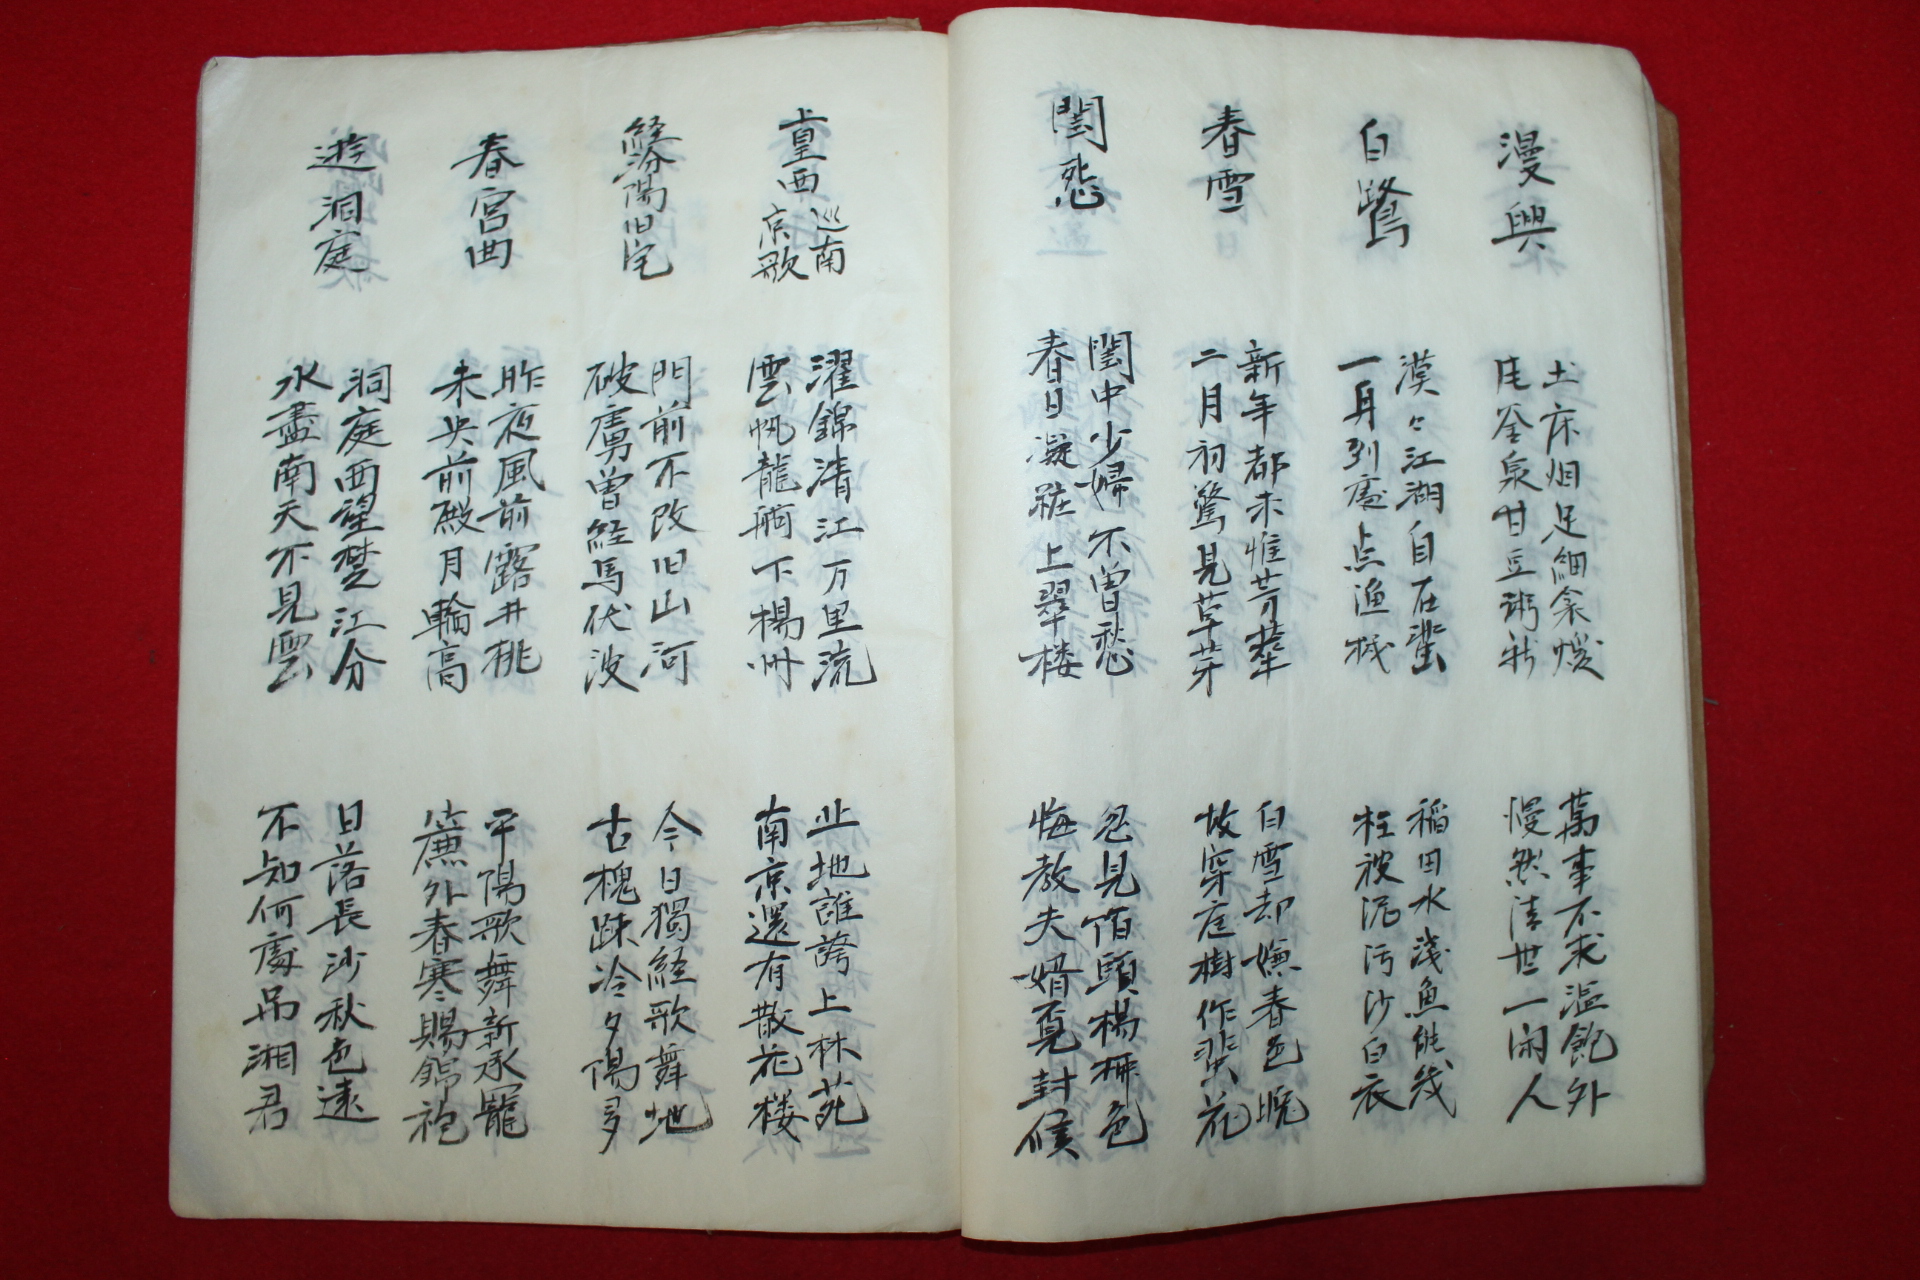 漫興
土床烟足細衾煖
瓦釜泉甘豆粥新
萬事不求溫飽外
慢然清世一閑人
白鷺
漠々江湖自在
一身到處点漁
稻田水淺魚能幾
枉被泥污沙白衣
春雪
新年都未惟芳華
二月初驚見草芽
白雪却嫌春色晚
故穿庭樹作蜚花
閨愁
閨中少婦不曾愁
春日凝粧上翠楼
忽見陌頭楊柳色
悔教夫婿覓封候
上皇西巡南京歌
濯錦清江万里流
雲帆龍舸下楊州
北地誰誇上林苑
南京還有散花楼
経汾陽旧宅
門前不改旧山河
破虜曾経馬伏波
今日獨経歌舞地
古槐踈冷夕陽多
春宮曲
昨夜風前露井桃
未央前殿月輪高
平陽歌舞新承寵
簾外春寒賜錦袍
遊洞庭
洞庭西望楚江分
水盡南天不見雲
日落長沙秋色遠
不知何處吊湘君